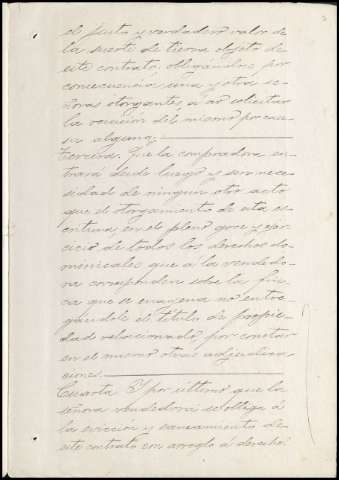 el justo y verdadero valor de
la suerte de tierra objeto de
este contrato, obligándose por
consecuencia, una y otra se-
ñoras otorgantes, a no solicitar
la rescisión del mismo por cau-
sa alguna;
Tercera. Que la compradora en-
trará desde luego y sin nece-
sidad de ningún otro acto
que el otorgamiento de esta es-
critura, en el pleno goce y ejer-
cicio de todos los derechos do-
minicales que a la vendedo-
ra corresponden sobre la fin-
ca que se enagena no entre-
gándole el título de propie-
dad relacionado, por constar
en el mismo otras adjudica-
ciones.
Cuarta. Y por último que la
señora vendedora se obliga á
la evicción y saneamiento de
este contrato con arreglo á derecho.